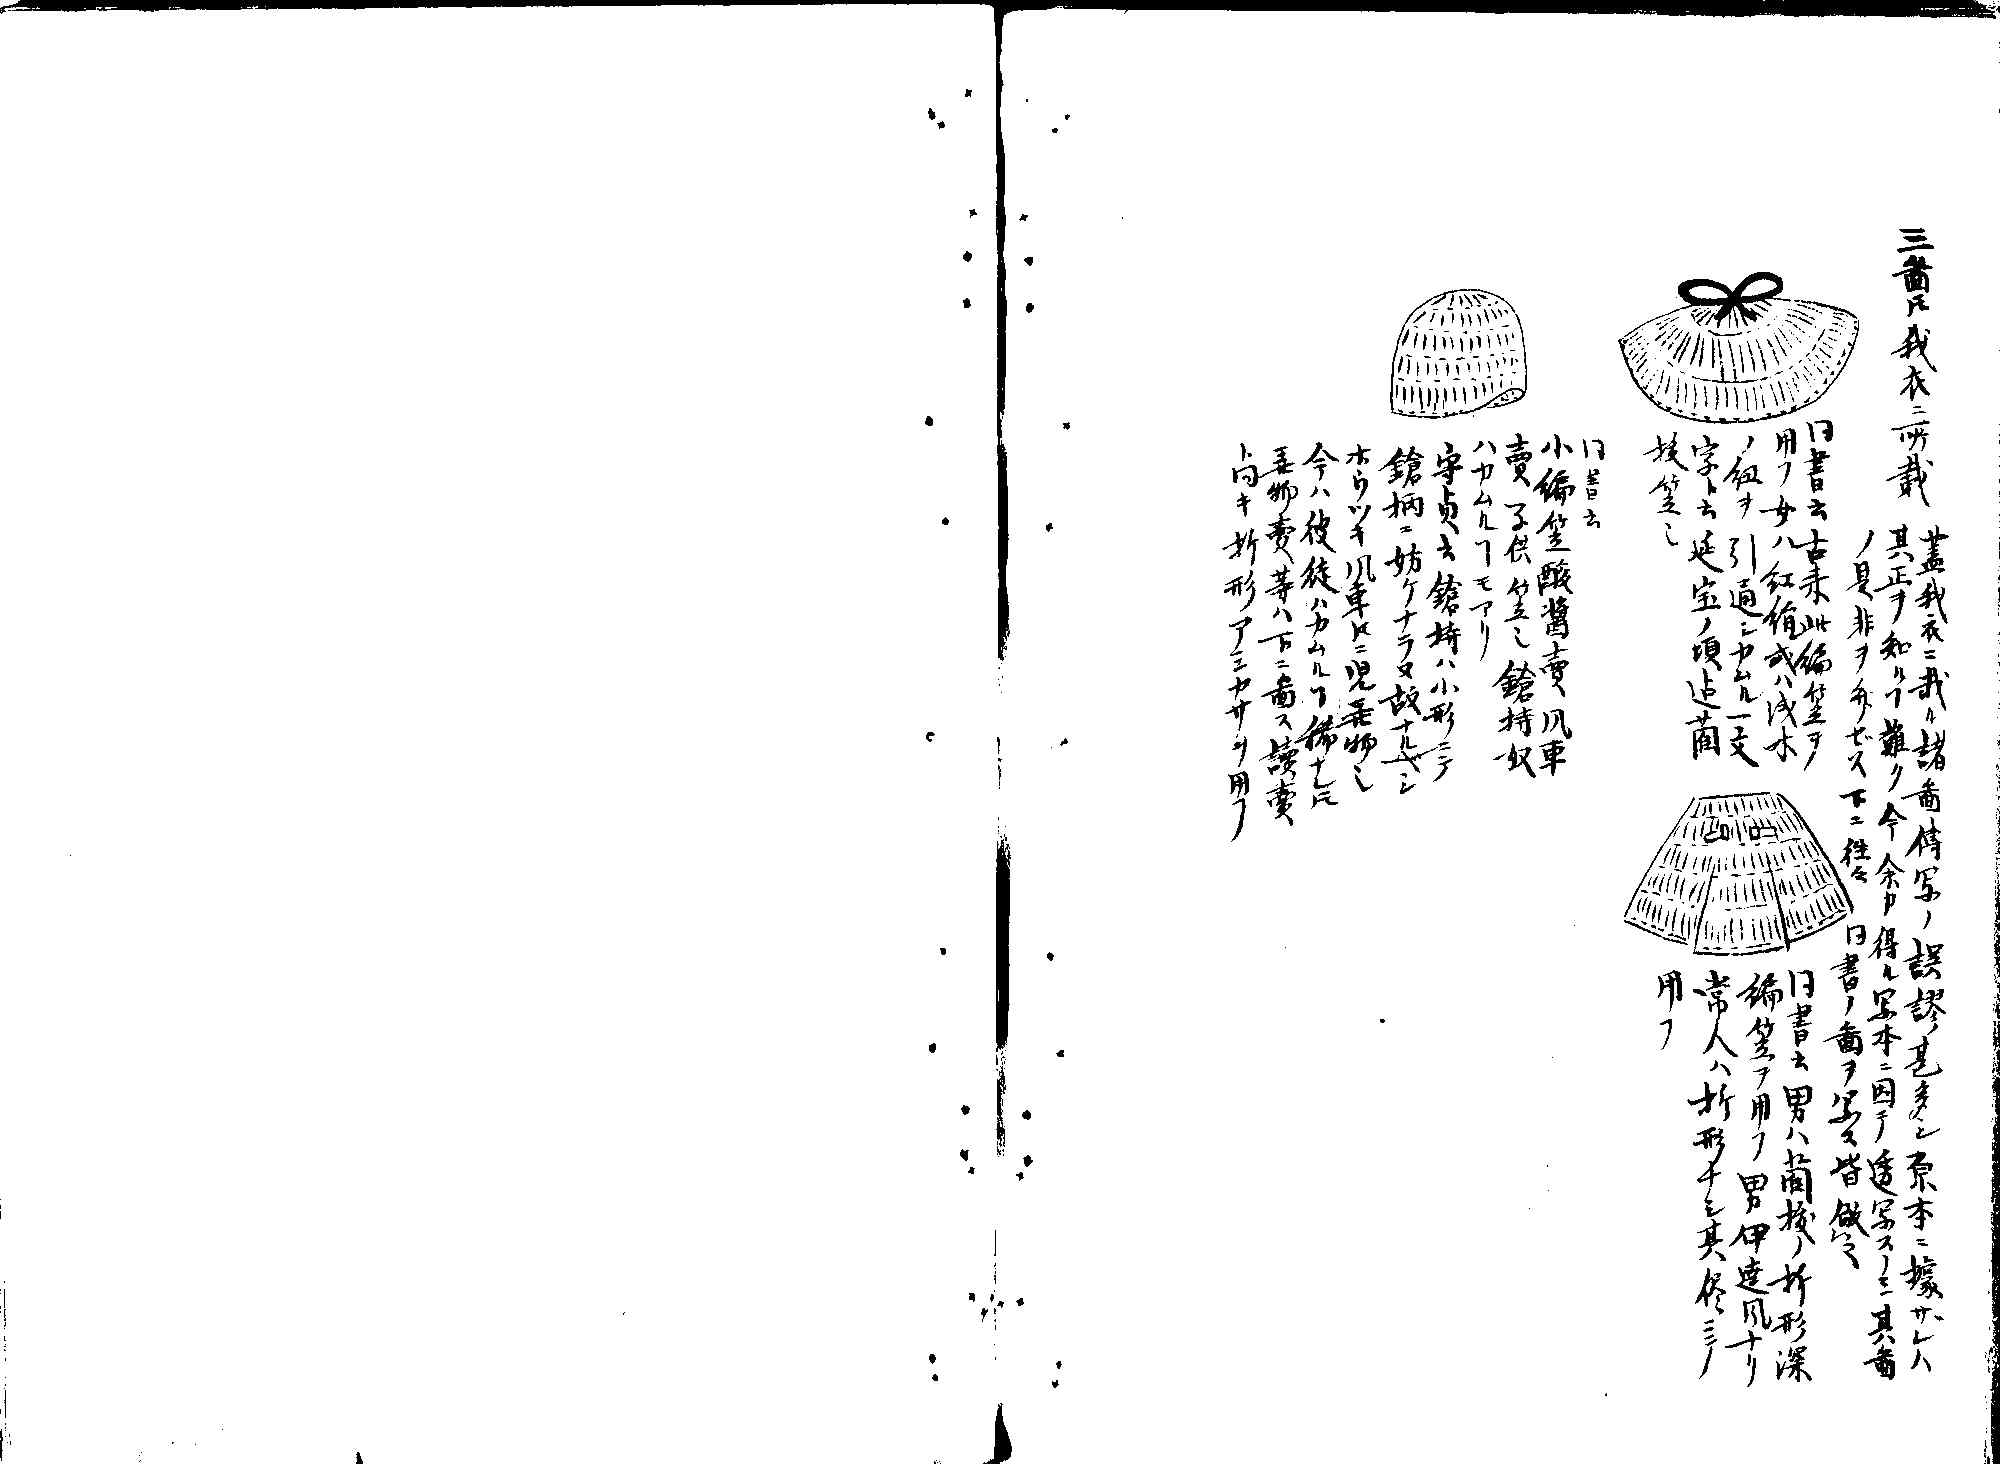 三畧圧我衣ニ所載
蓋我衣ニ載ル諸畧傳写ノ誤謬甚多シ原本ニ據サレハ
其正ヲ知ルヿ難ク今余カ得ル写本ニ因テ透写スノミ其畧
ノ是非ヲ弁ゼス下ニ往々同書ノ畧ヲ写ス皆倣之
同書云古来此編笠ヲ
用フ女ハ紅絹或ハ浅木
ノ紐ヲ引通シカムル一文
字ト云延宝ノ頃迄藺
笠也
同書云男ハ藺ノ折形深
編笠ヲ用フ男伊達風ナリ
常人ハ折形ナシ其侭ニテ
用フ
同書云
小編笠酸醤賣風車
賣子供笠也鎗持奴
ハカムルヿモアリ
守貞云鎗持ハ小形ニテ
鎗柄ニ妨ケナラヌ故ナルベシ
ホウツキ風車トモニ児弄物也
今ハ彼徒ハカムルヿ稀ナレ圧
弄物賣等ハ下ニ畧ス讀賣
ト同キ折形アミカサヲ用フ